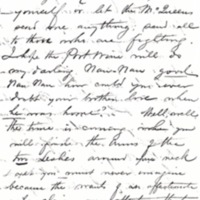 yourself. or let the McQueens
send me anything send all
to those who are fighting.
I hope the Port Wine will do
my darling Naw Naw good
Naw Naw how could you ever
doubt your brother love when
he was home. Well, well
the time is coming when you
will find the arms of the
two Leakes around your neck
yes you must never imagine
because the wants of us